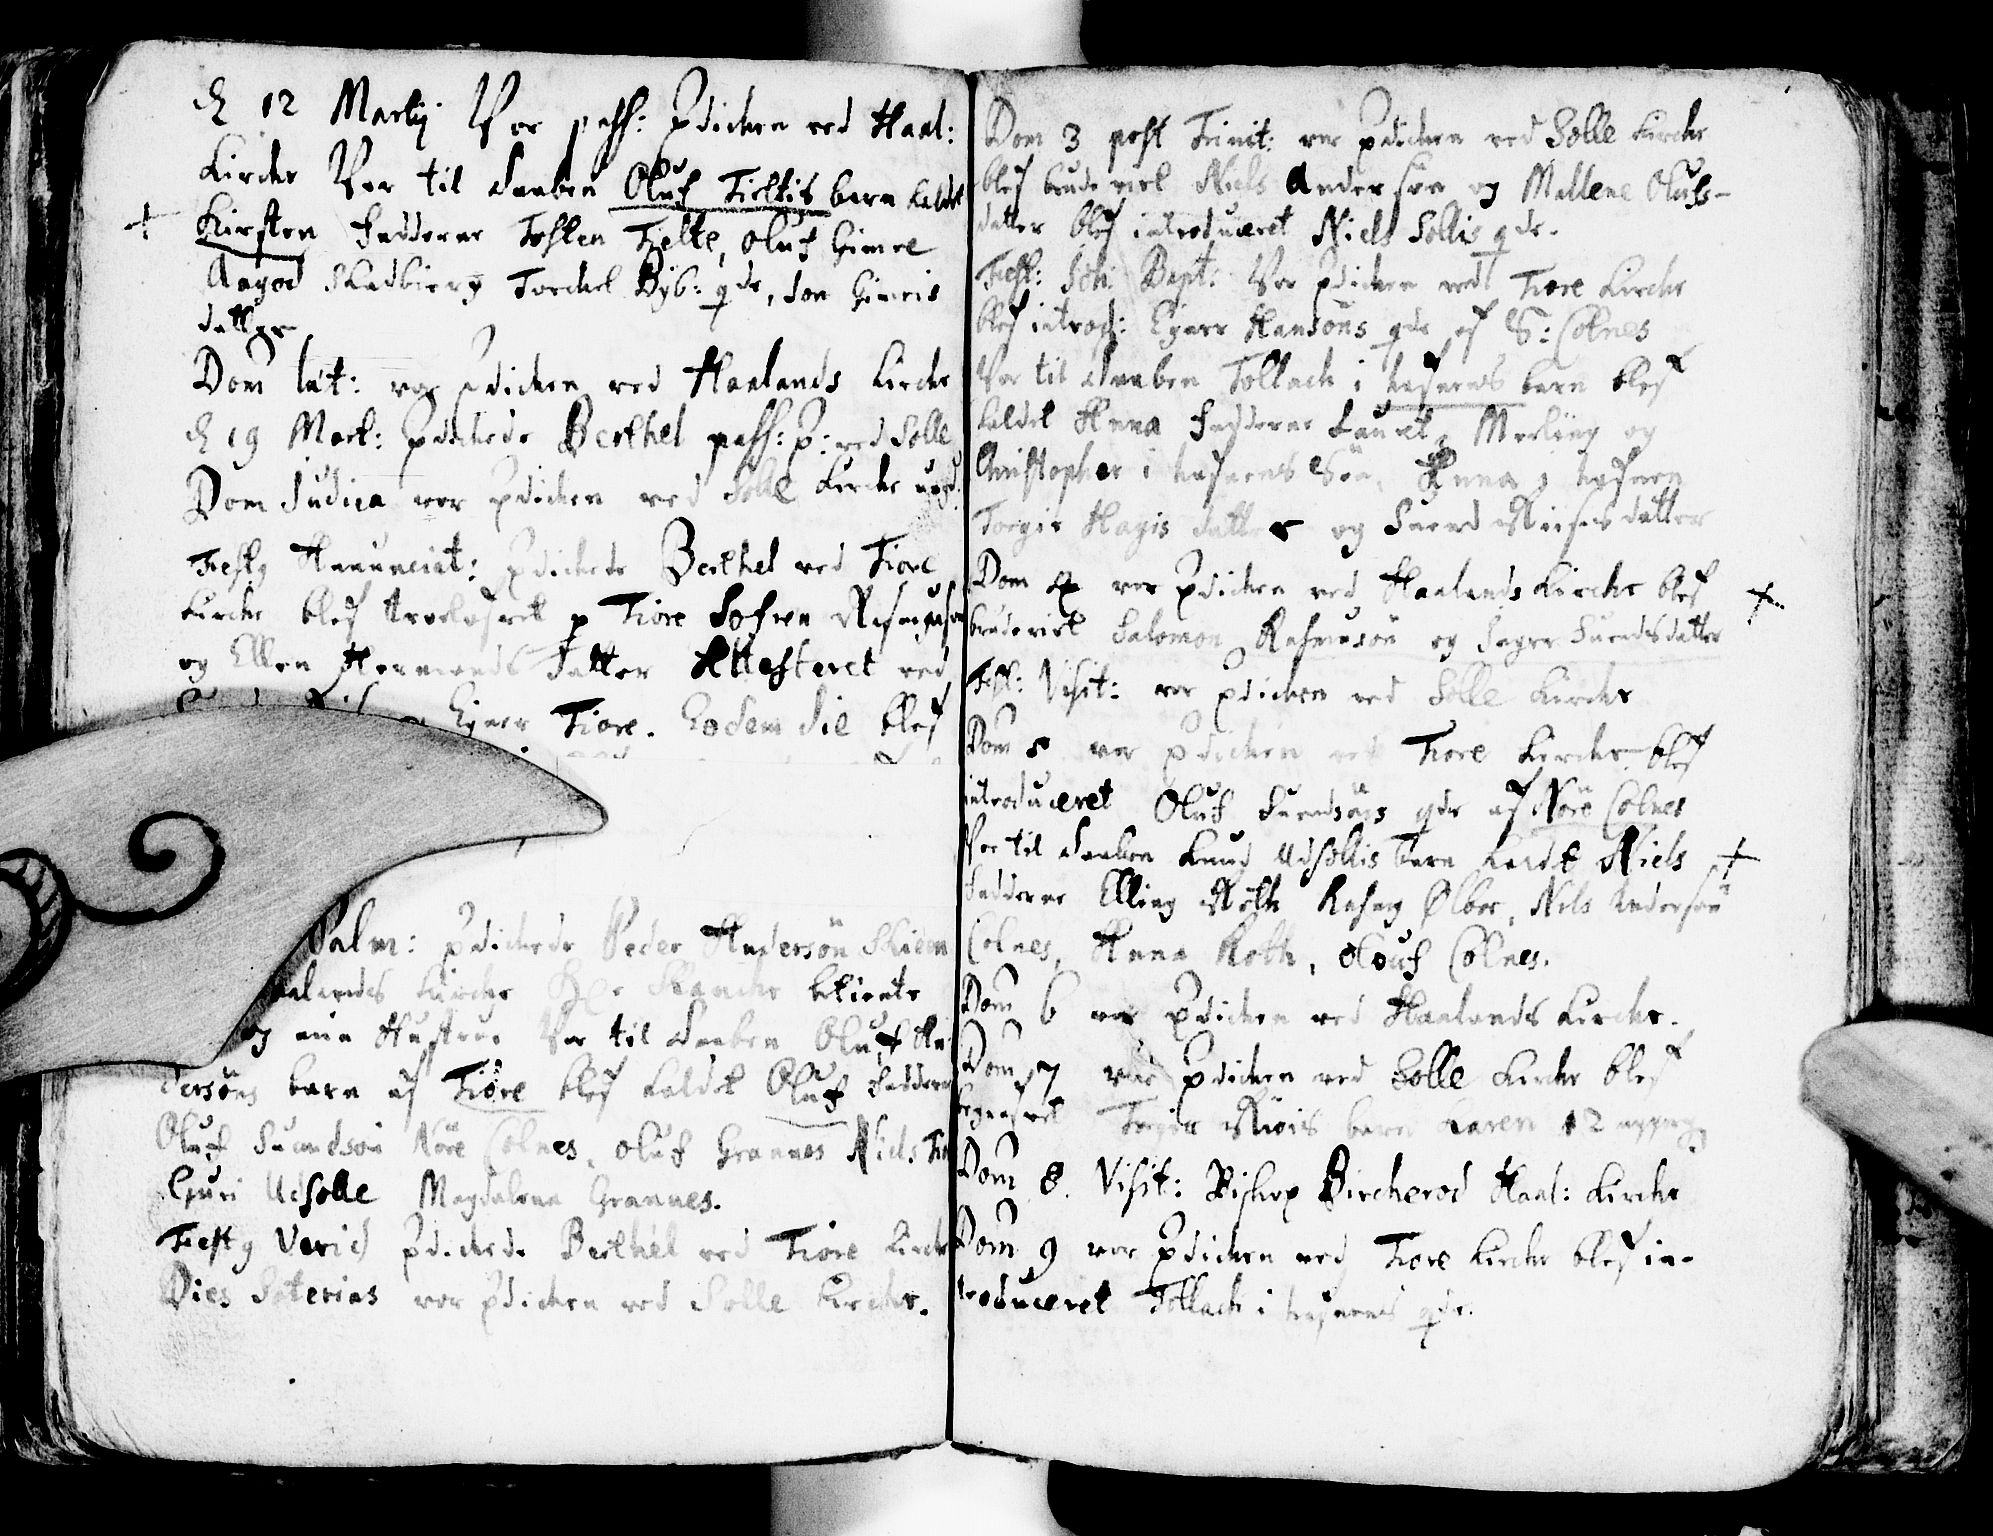 d 12 Martij Var pass: Pdicken ved Haal:
Kircke Var til daaben Oluf Tieltis barn kaldet
+ Kirsten Fadderne Tosten Tielte, Oluf Gimre
Aagod Skadbierg Torckel Byb: qde, Jon Gimris
datter
Dom læt: var Pdicken ved Haalands Kircke
d 19 Mart: Pdickede Berthel pass: P: ved Solle
Dom Judica var Pdicken ved Solle Kircke
Festq Annunciat: Pdickede Berthel ved Tiore
Kircke blef trolofvet p Tiore Lofven
og Ellen Hermends datter Attesteret ved
Tiore. Eodem die blef
Palm: Pdickede Peder Andersön
aalands Kircke betiente
og min Hustrue Var til daaben Oluf An
dersöns barn af Tiöre blef kaldet Oluf Faddere
Oluf Suendsön Nöre Colnes, Oluf Grannes Niels Tio
Guri Udsolle Magdalena Grannes.
Festq Virid Pdickede Berthel ved Tiore Kircke
Dies Soterias var Pdicken ved Solle Kircke.
Dom 3 post Trinit: var Pdicken ved Solle Kircke
blef brudeviel Niels Andersön og Mallene Olufs-
datter blef introduceret Niels Sollis qde.
Fest: Joh: Bapt: Var Pdicken ved Tiore Kircke
blef introd: Ejner Hansöns qde af S: Colnes
Var til daaben Tollach i hafnens barn blef
kaldet Anna Fadderne Laurets Meeling og
Christopher i hafnens Sön, Anna i hafnen
Torgir Hagis datter og Suend datter
Dom 4 var Pdicken ved Haalands Kircke blef +
brudeviel Salomon Rasmusön og Seger Suendsdatter
Fest: Visit: var Pdicken ved Solle Kircke
Dom 5 var Pdicken ved Tiore Kircke blef
introduceret Oluf Suendsöns qde af Nöre Colnes
Var til daaben Knud Udsollis barn kaldet Niels +
Fadderne Elling Röth Rasmq Ølber, Niels Andersön
Colnes, Anna Roth, Oluf Colnes.
Dom 6 var Pdicken ved Haalands Kircke.
Dom 7 var Pdicken ved Solle Kircke blef
begrafvet barn Karen 12
Dom 8. Visit: Biskop Bircherod Haal: Kircke
Dom 9 var Pdicken ved Tiore Kircke blef in-
troduceret Tollach i hafnens qde.